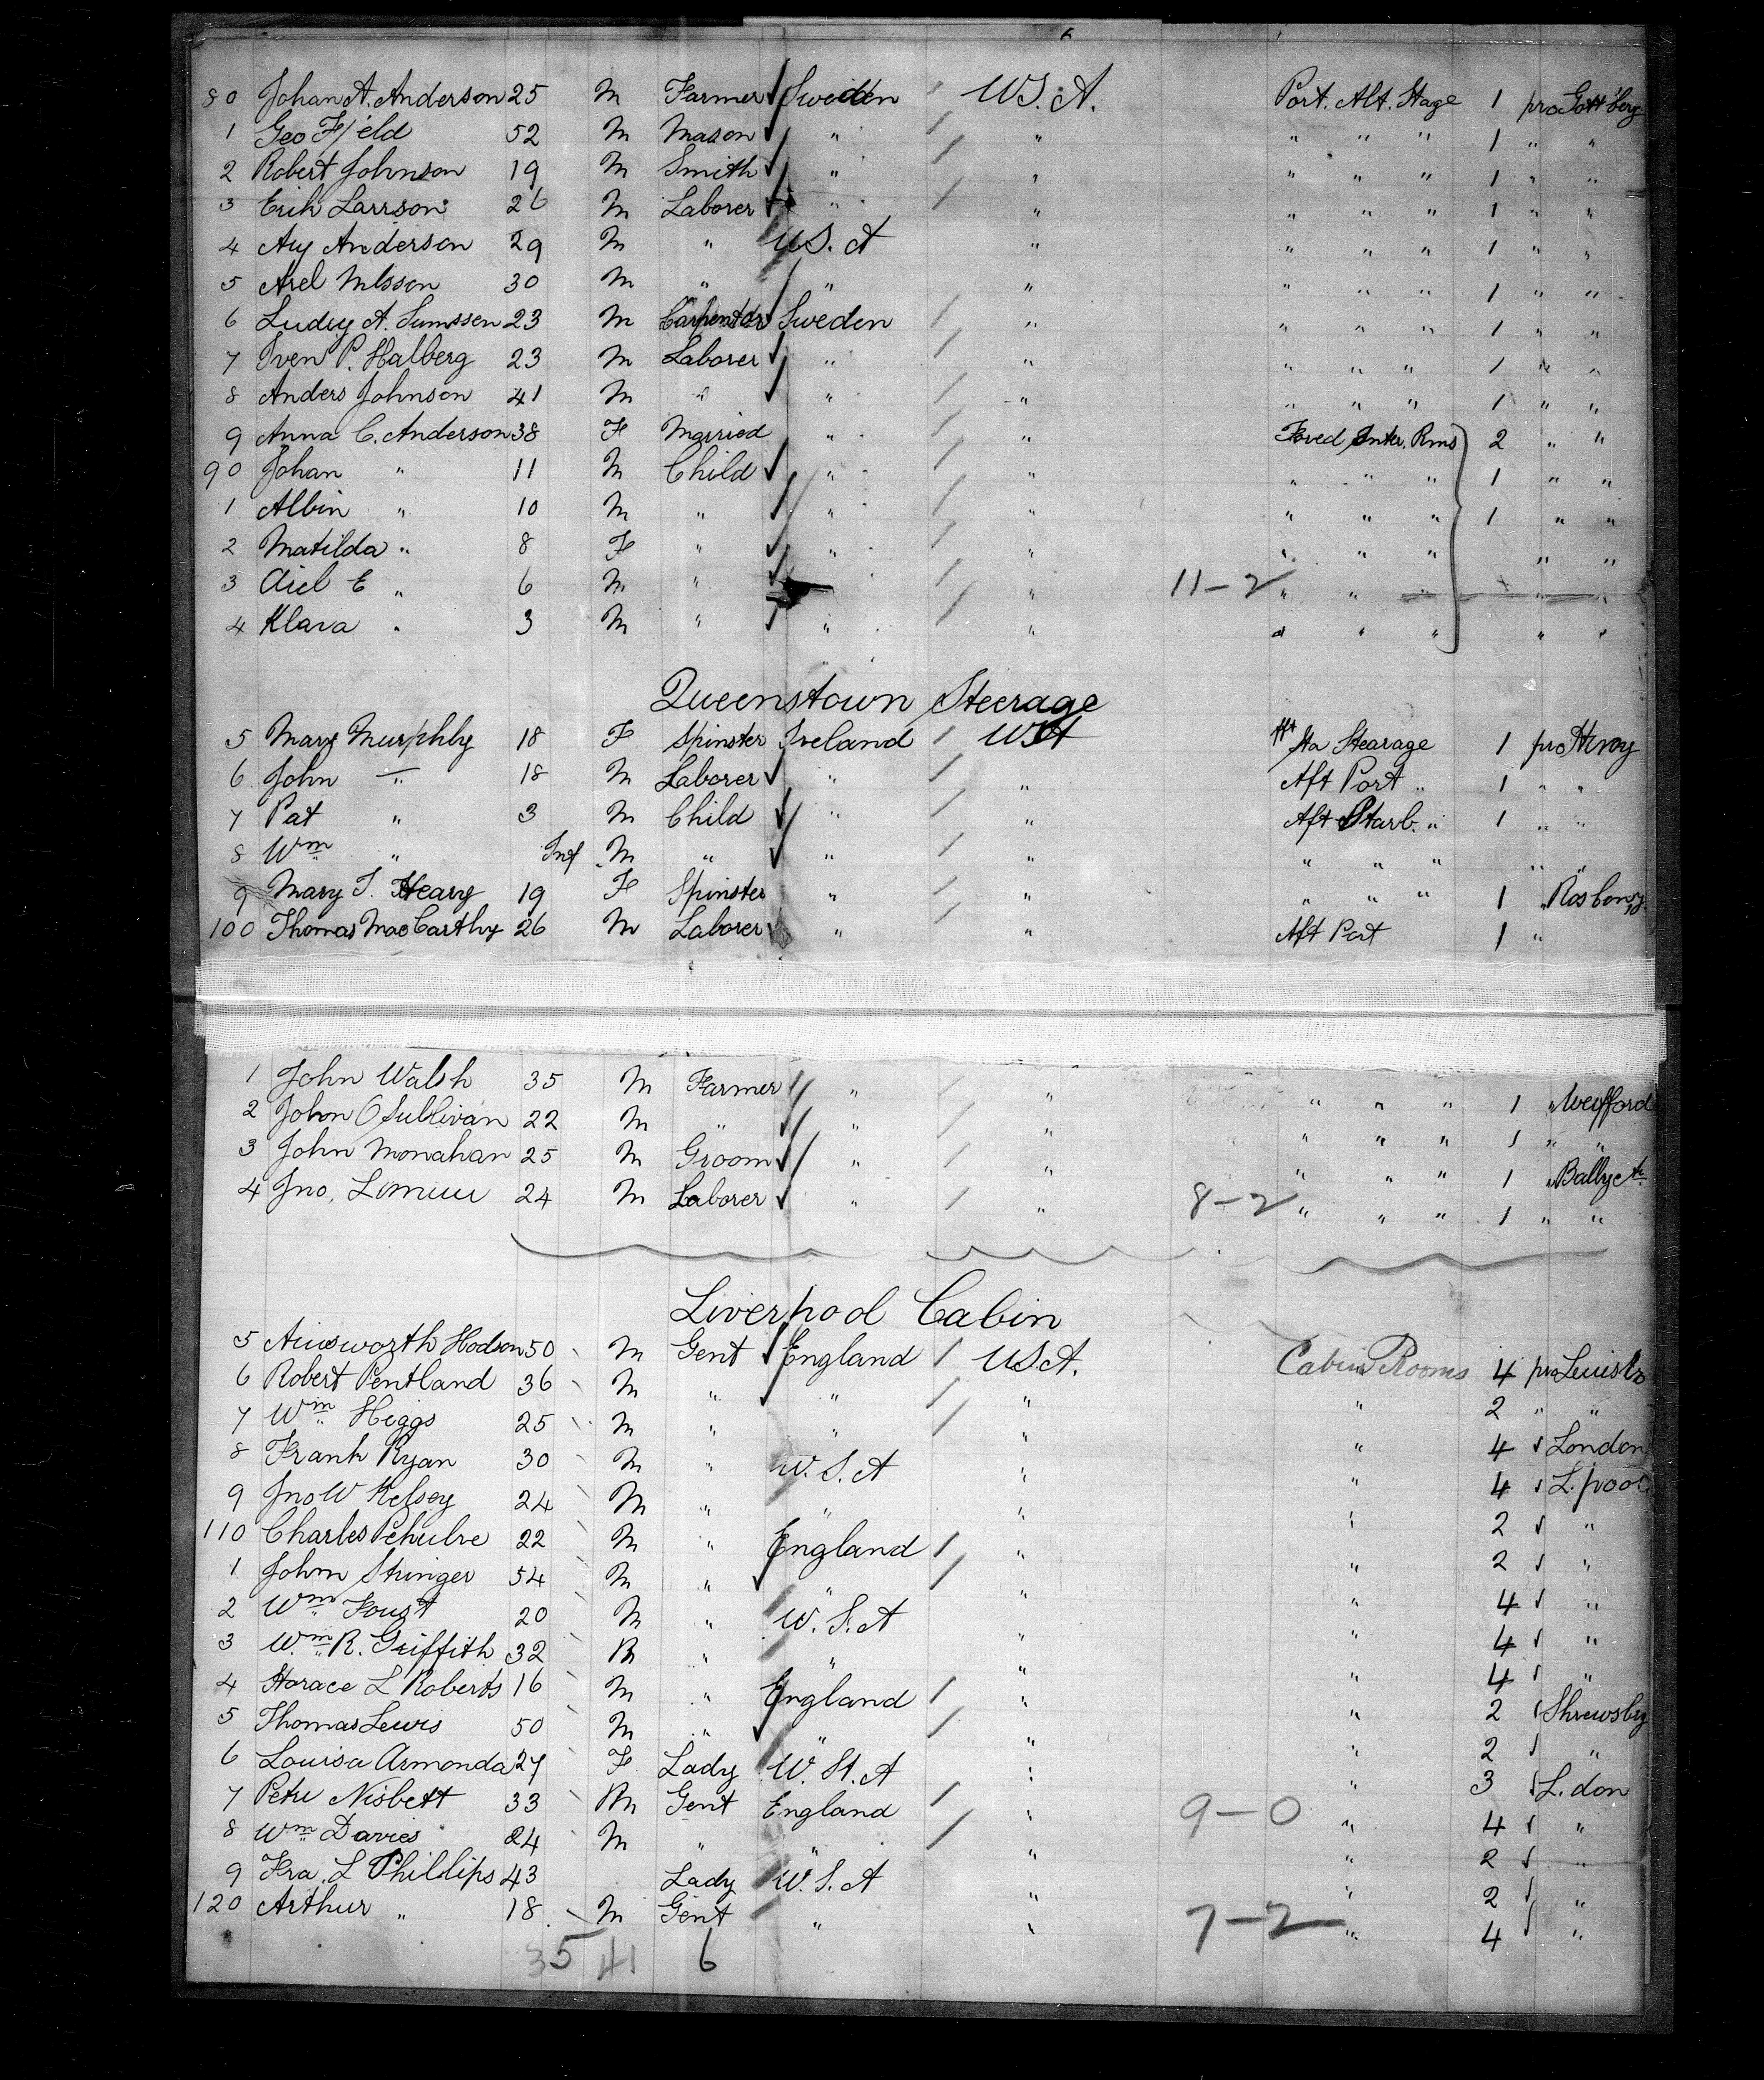 80 Johan A. Anderson 25 M Farmer Sweden / U.S.A. Port. Aft. Stage 1 pro Gott'berg
1 Geo Fjeld 52 M Mason " / " " " " 1 " "
2 Robert Johnson 19 M Smith " / " " " " 1 " "
3 Erik Larrson 26 M Laborer " / " " " " 1 " "
4 Aug Anderson 29 M " U.S.A " " " " 1 " "
5 Axel Nilsson 30 M " " " " " " 1 " "
6 A. 23 M Carpenter Sweden / " " " " 1 " "
7 Sven P. Halberg 23 M Laborer " / " " " " 1 " "
8 Anders Johnson 41 M " " / " " " " 1 " "
9 Anna C. Anderson 38 F Married " / " Fored Inter. Rms 2 " "
90 Johan " 11 M Child " / " " " " 1 " "
1 Albin " 10 M " " / " " " " 1 " "
2 Matilda " 8 F " " / " " " " " "
3 Axel E " 6 M " / " 11-2 " " " " "
4 Klara " 3 M " " / " " " " " "
Queenstown Steerage
5 Mary Murphhy 18 F Spinster Ireland / USA Aft Sta Stearage 1 pro
6 John " 18 M Laborer " / " Aft Port " 1 " "
7 Pat " 3 M Child " / " Aft Starb. " 1 " "
8 Wm " Inf M " " / " " " " " "
9 Mary T. Heary 19 F Spinster " / " " " " 1 "
100 Thomas MacCarthy 26 M Laborer " / " Aft Port 1 "
1 John Walsh 35 M Farmer " / " " " " 1 " Wexfford
2 John O Sullivan 22 M " " / " " " " 1 " "
3 John Monahan 25 M Groom " / " " " " 1 "
4 Jno. 24 M Laborer " / " 8-2 " " " 1 " "
Liverpool Cabin
5 Ainsworth Hodson 50 M Gent England / U.S.A. Cabin Rooms 4 pro
6 Robert Pentland 36 M " " / " " 2 " "
7 Wm Higgs 25 M " " / " " 4 London
8 Frank Ryan 30 M " U.S.A " " 4 L.pool
9 Jno W Kelsey 24 M " " " " 2 "
110 Charles 22 M " England / " " 2 "
1 John Stringer 54 M " " / " " 4 "
2 Wm Foust 20 M " U.S.A " " 4 "
3 Wm R. Griffith 32 M " " " " 4 "
4 Horace L Roberts 16 M " England / " " 2 Shrewsby
5 Thomas Lewis 50 M " " / " " 2 "
6 Louisa Armonda 27 F Lady U.St.A " " 3 L.don
7 Peter Nisbett 33 M Gent England / " 9-0 " 4 "
8 Wm Davies 24 M " " / " " 2 "
9 Fra. L Phillips 43 Lady U.S.A " " 2 "
120 Arthur " 18 M Gent " " 7-2 " 4 "
35 41 6